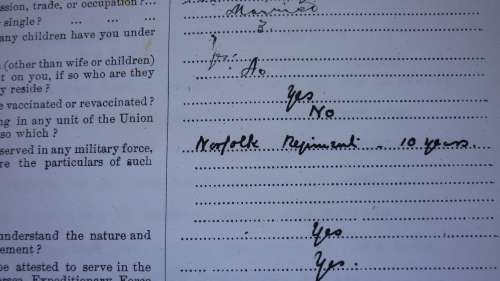 ession, trade, or occupation?...
single? ... ... ... Married
any children have you under 3.
(other than wife or children)
t on you, if so who are they No
y reside?
e vaccinated or revaccinated? Yes
ng in any unit of the Union No
so which?
served in any military force, Norfolk Regiment. 10 years.
re the particulars of such
understand the nature and Yes
ement?
be attested to serve in the Yes.
ersea Expeditionary Force